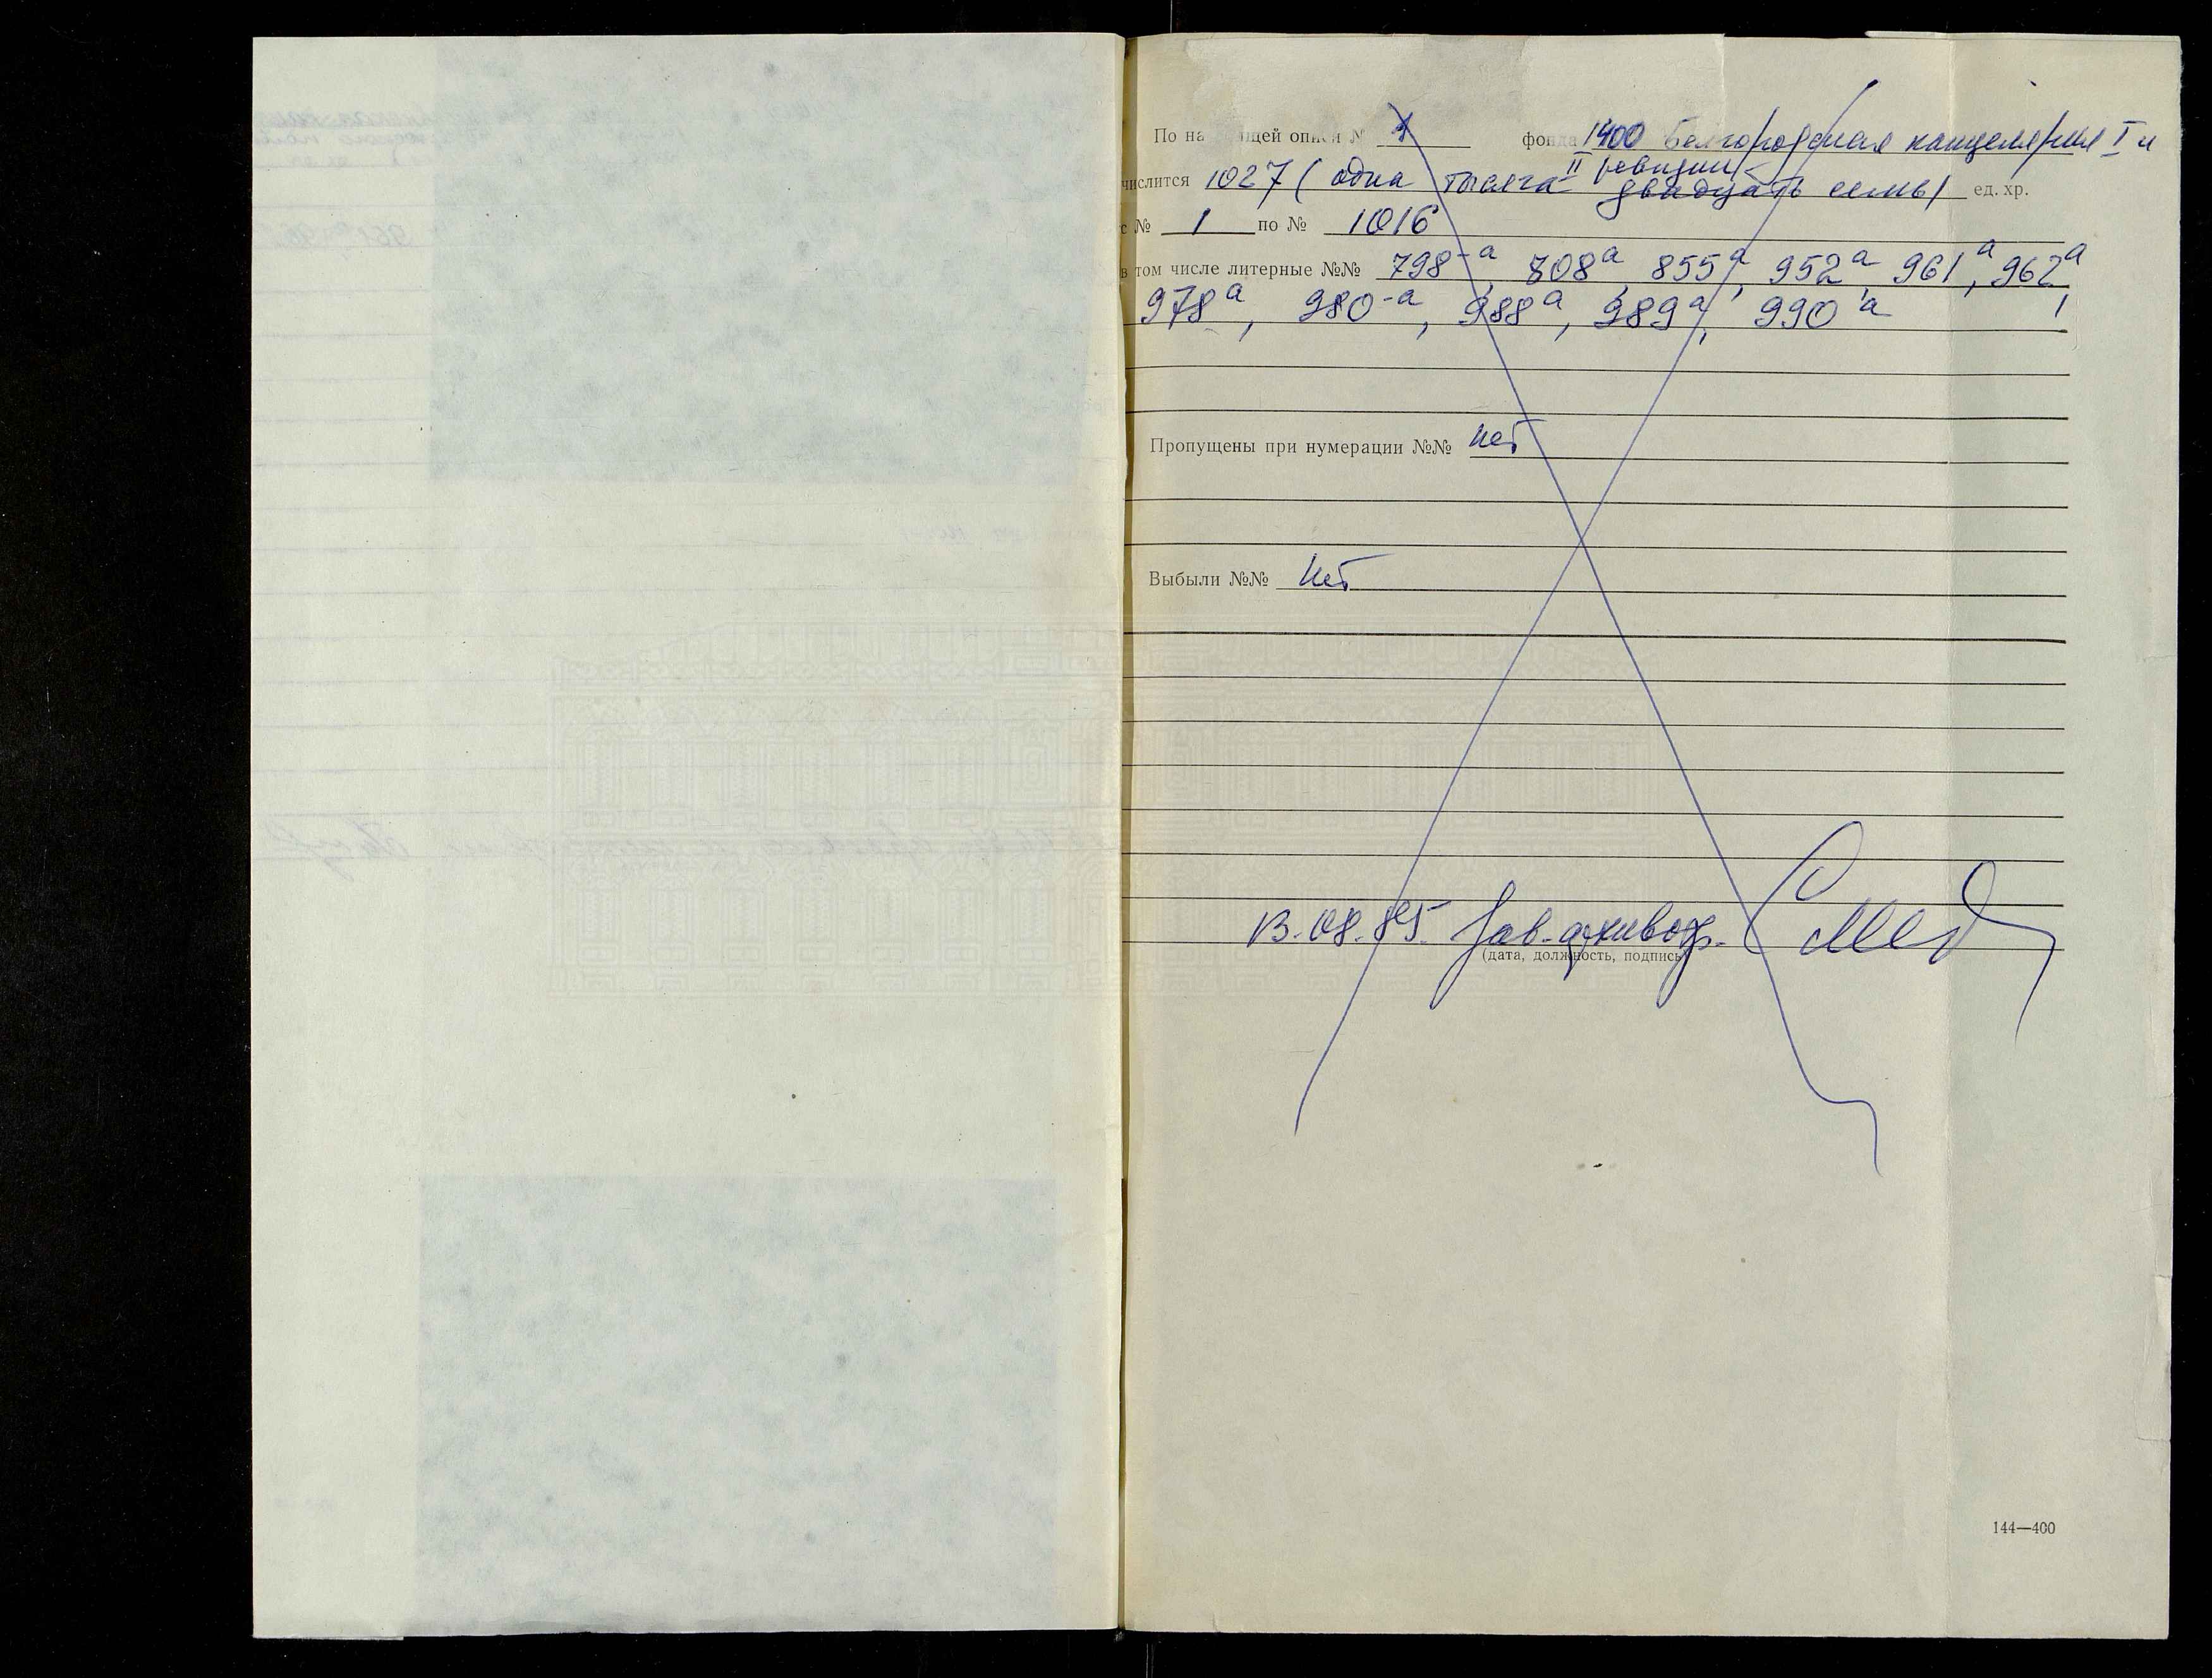 По на щей описи № 1 фонда 1400 Белгородская канцелярия I и
II ревизии
числится 1027 (одна тысяча двадцать семь) ед. хр.
с № 1 по № 1016
в том числе литерные №№ 798-а, 808а, 855а, 952а, 961а, 962а,
978а, 980-а, 988а, 989а, 990а
Пропущены при нумерации №№ нет
Выбыли №№ нет
13.08.85. Зав. архивохр.
(дата, должность, подпись)
144—400